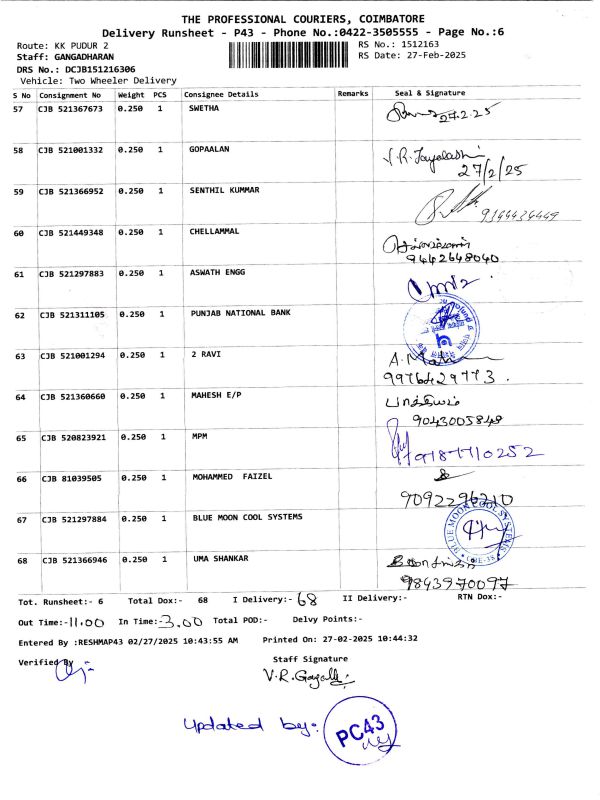 THE PROFESSIONAL COURIERS, COIMBATORE
Delivery Runsheet - P43 - Phone No.:0422-3505555 - Page No.:6
Route: KK PUDUR 2 RS No.: 1512163
Staff: GANGADHARAN RS Date: 27-Feb-2025
DRS No.: DCJB151216306
Vehicle: Two Wheeler Delivery
S No Consignment No Weight PCS Consignee Details Remarks Seal & Signature
57 CJB 521367673 0.250 1 SWETHA 27.2.25
58 CJB 521001332 0.250 1 GOPAALAN V.R. Jayalashi
27/2/25
59 CJB 521366952 0.250 1 SENTHIL KUMMAR
60 CJB 521449348 0.250 1 CHELLAMMAL
9442648040
61 CJB 521297883 0.250 1 ASWATH ENGG
62 CJB 521311105 0.250 1 PUNJAB NATIONAL BANK
63 CJB 521001294 0.250 1 2 RAVI
9976429773.
64 CJB 521360660 0.250 1 MAHESH E/P
9043005848
65 CJB 520823921 0.250 1 MPM
66 CJB 81039505 0.250 1 MOHAMMED FAIZEL
9092296210
67 CJB 521297884 0.250 1 BLUE MOON COOL SYSTEMS BLUE MOON COOL SYSTEMS
68 CJB 521366946 0.250 1 UMA SHANKAR
9843970097
Tot. Runsheet:- 6 Total Dox:- 68 I Delivery:- 68 II Delivery:- RTN Dox:-
Out Time:- 11.00 In Time:- 3.00 Total POD:- Delvy Points:-
Entered By :RESHMAP43 02/27/2025 10:43:55 AM Printed On: 27-02-2025 10:44:32
Verified By Staff Signature
Updated by: PC43